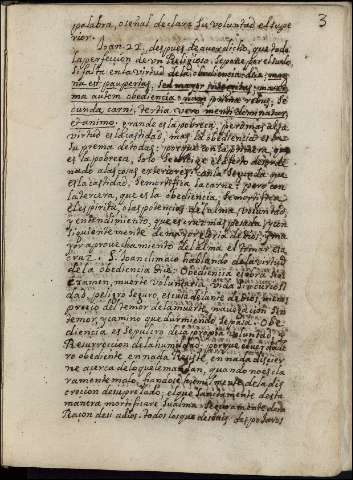 3
palabra, o señal declare su voluntad el supe
rior.
Joan. 22. despues de auer dicho, que toda
la perfeccion de vn Religioso se pone por el suelo
si falta en la virtud de la obediencia dize: mag
na est paupertas, sed maior
ma autem obediencia: nam prima rebus, se
cunda carni, tertia vero menti dominatur
et animo, grande es la pobreza, pero mas alta
virtud es la castidad, mas la obediencia es la
suprema de todas: porque con la primera que
es la pobreza, solo se el afecto
nado a las cosas exteriores: con la segunda que
es la castidad, se mortifica la carne: pero con
la tercera, que es la obediencia, se mortifica
el espiritu, o las potencias del alma, voluntad,
y entendimiento, que es cosa mas pesada, y con
siguientemente de mayor gloria de Dios, y ma
yor aprouechamiento del alma el tomar esta
cruz. S. Joan climaco hablando de la virtud
de la obediencia dize: Obediencia es obra sin
examen, muerte voluntaria, vida sin curiosi
dad, peligro seguro, escusa delante de Dios, menos
precio del temor de la muerte, nauegacion sin
temor, y camino que durmiendo se passa. Obe
diencia es sepulcro de la propria voluntad, y
Resurreccion de la humildad: porque el verdade
ro obediente en nada Resiste, en nada discier
ne acerca de lo que le mandan, quando no es cla
ramente malo, fiandose humilmente de la dis
crecion de su prelado: el que sanctamente desta
manera mortificare su alma, seguramente dara
Raçon de si a Dios. todos los que desseais despojaros